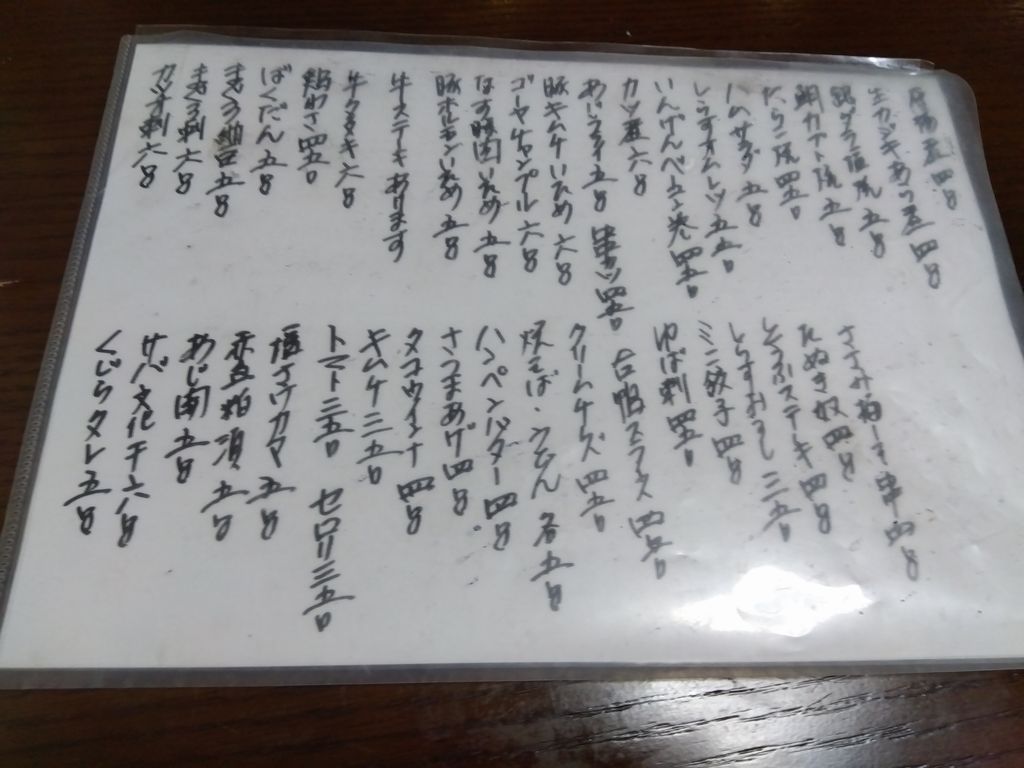 生カジキあら煮 四〇
銀ダラ塩焼 五〇
鯛カブト焼 五〇
たらこ焼 四五〇
ハムサラダ 五〇
しらすオムレツ 五五〇
いんげんベーコン巻 四五〇
カツ煮 六〇
あじフライ 五〇 串カツ 四五〇
豚キムチいため 六〇
ゴーヤチャンプル 六〇
なす豚肉いため 五〇
豚ホルモンいため 五〇
牛ステーキあります
牛タタキ 六〇
鮪わさ 四五〇
ばくだん 五〇
まぐろ納豆 五〇
まぐろ刺 六〇
カツオ刺 六〇
ささみ梅しそ串 四〇
たぬき奴 四〇
とうふステーキ 四〇
しらすおろし 三五〇
ミニ餃子 四〇
ゆば刺 四五〇
合鴨スライス 四五〇
クリームチーズ 四五〇
焼そば・うどん 各五〇
ハンペンバター 四〇
さつまあげ 四〇
タコウインナ 四〇
キムチ 三五〇
トマト 三五〇 セロリ 三五〇
塩さけカマ 五〇
赤魚粕漬 五〇
あじ開 五〇
サバ文化干 六〇
くじらタタレ 五〇